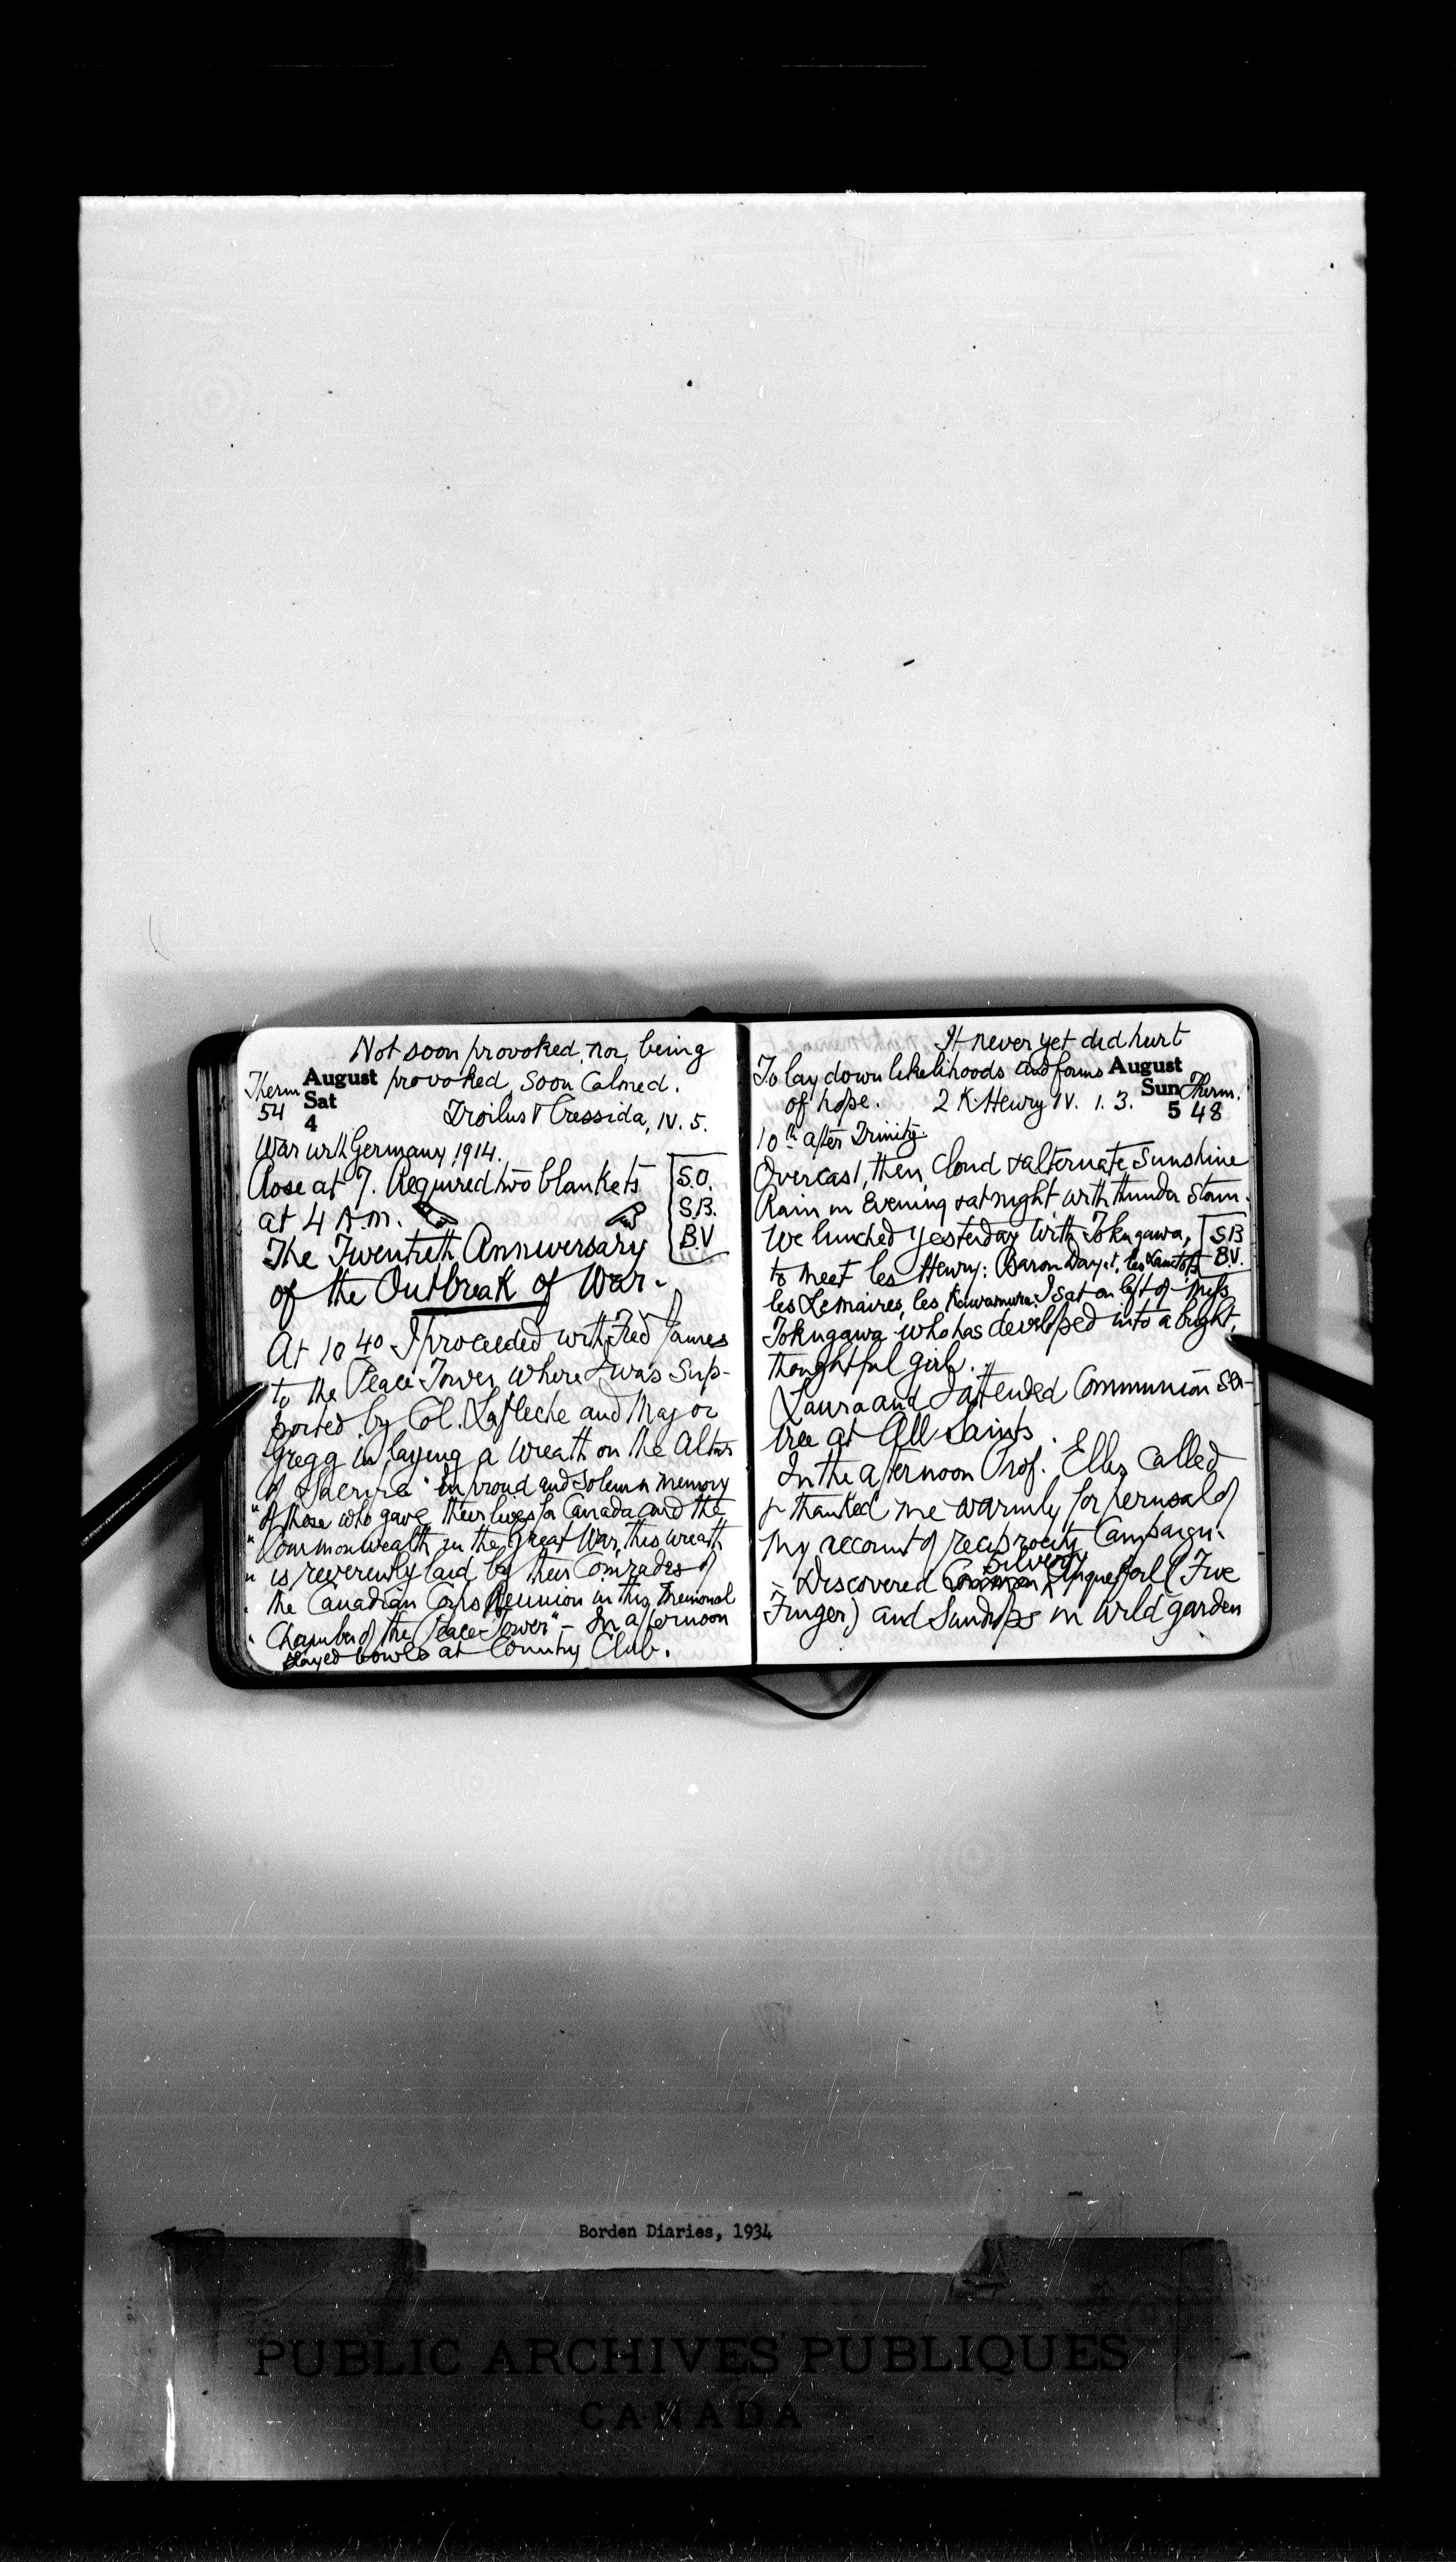 Not soon provoked, nor, being
August provoked, soon Calmed.
Therm
54
Sat
4
Troilus & Cressida, IV. 5.
War with Germany, 1914.
Rose at 7. Required two blankets
at 4 A.m.
S.O.
S.B.
B.V
The Twentieth Anniversary
of the Outbreak of War-
At 10 40 I proceeded with Fred James
to the Peace Tower, where I was sup-
ported by Col. LaFleche and Major
Gregg in laying a wreath on the Altar
of Sacrifice "In proud and solemn memory
"of those who gave their lives for Canada and the
"Commonwealth in the Great War, this wreath
" is reverently laid by their Comrades of
" the Canadian Corps Reunion in this Memorial
" Chamber of the Peace Tower" - In afternoon
played bowls at Country Club.
It never yet did hurt
To lay down likelihoods and forms August
of hope. 2 K. Henry IV. 1. 3.
Sun
5
Therm.
48
10th after Trinity.
Overcast, then, Cloud & alternate Sunshine
Rain in Evening & at night with thunder storm.
We lunched yesterday with Tokugawa,
S B
B.V.
to meet les Henry: Baron les
les Lemaires, les Kawamura. I sat on left of Miss
Tokugawa who has developed into a bright,
thoughtful girl.
Laura and I attended Communion Ser-
vice at All Saints.
In the afternoon Prof. Ells called
& thanked me warmly for perusal of
my account of reciprocity Campaign.
- Discovered Common Silvery Cinquefoil (Five
Finger) and Sundrops in wild garden
Borden Diaries, 1934
PUBLIC ARCHIVES PUBLIQUES
CANADA